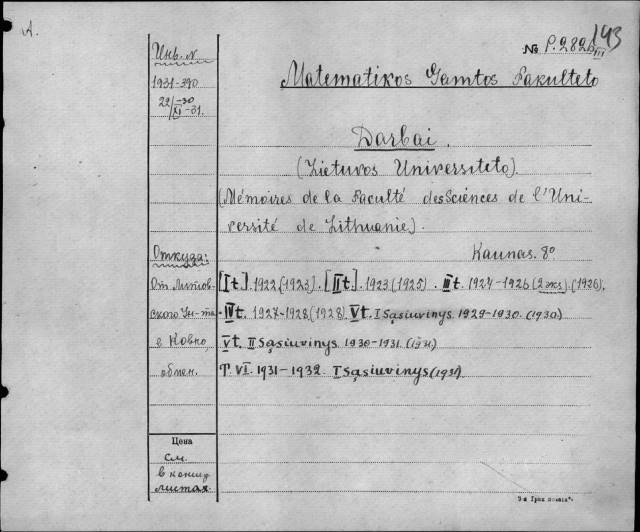 А.
№ P.282/III 143
Инв. №
1931-390
22/XI -30 -31.
Matematikos Gamtos Fakulteto
Darbai.
(Lietuvos Universiteto).
(Mémoires de la Faculté des Sciences de l'Uni-
versité de Lithuanie).
Kaunas. 8º
Откуда:
От Литов-
ского Ун-та
в Ковно,
обмен.
[I t.] 1922 (1923). [II t.] 1923 (1925). III t. 1924-1926 (2 экз) (1926).
IV t. 1927-1928 (1928). V t. I Sąsiuvinys 1929-1930. (1930)
V t. II Sąsiuvinys 1930-1931. (1931)
T. VI. 1931-1932. I Sąsiuvinys (1931)
Цена
См.
в концѣ
листах.